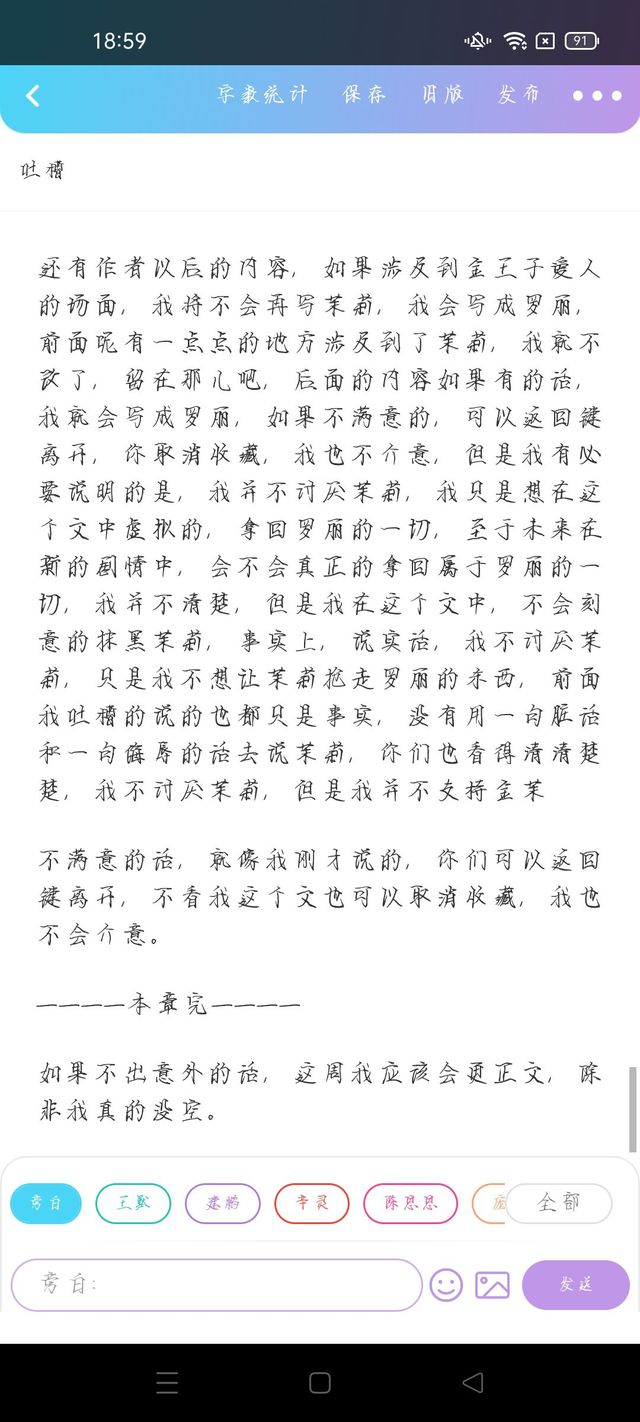 18:59
91
字数统计 保存 旧版 发布
吐槽
还有作者以后的内容，如果涉及到金王子爱人
的场面，我将不会再写茉莉，我会写成罗丽，
前面呢有一点点的地方涉及到了茉莉，我就不
改了，留在那儿吧，后面的内容如果有的话，
我就会写成罗丽，如果不满意的，可以返回键
离开，你取消收藏，我也不介意，但是我有必
要说明的是，我并不讨厌茉莉，我只是想在这
个文中虚拟的，拿回罗丽的一切，至于未来在
新的剧情中，会不会真正的拿回属于罗丽的一
切，我并不清楚，但是我在这个文中，不会刻
意的抹黑茉莉，事实上，说实话，我不讨厌茉
莉，只是我不想让茉莉抢走罗丽的东西，前面
我吐槽的说的也都只是事实，没有用一句脏话
和一句侮辱的话去说茉莉，你们也看得清清楚
楚，我不讨厌茉莉，但是我并不支持金茉
不满意的话，就像我刚才说的，你们可以返回
键离开，不看我这个文也可以取消收藏，我也
不会介意。
————本章完————
如果不出意外的话，这周我应该会更正文，除
非我真的没空。
旁白 王默 建鹏 辛灵 陈思思 全部
旁白：
发送